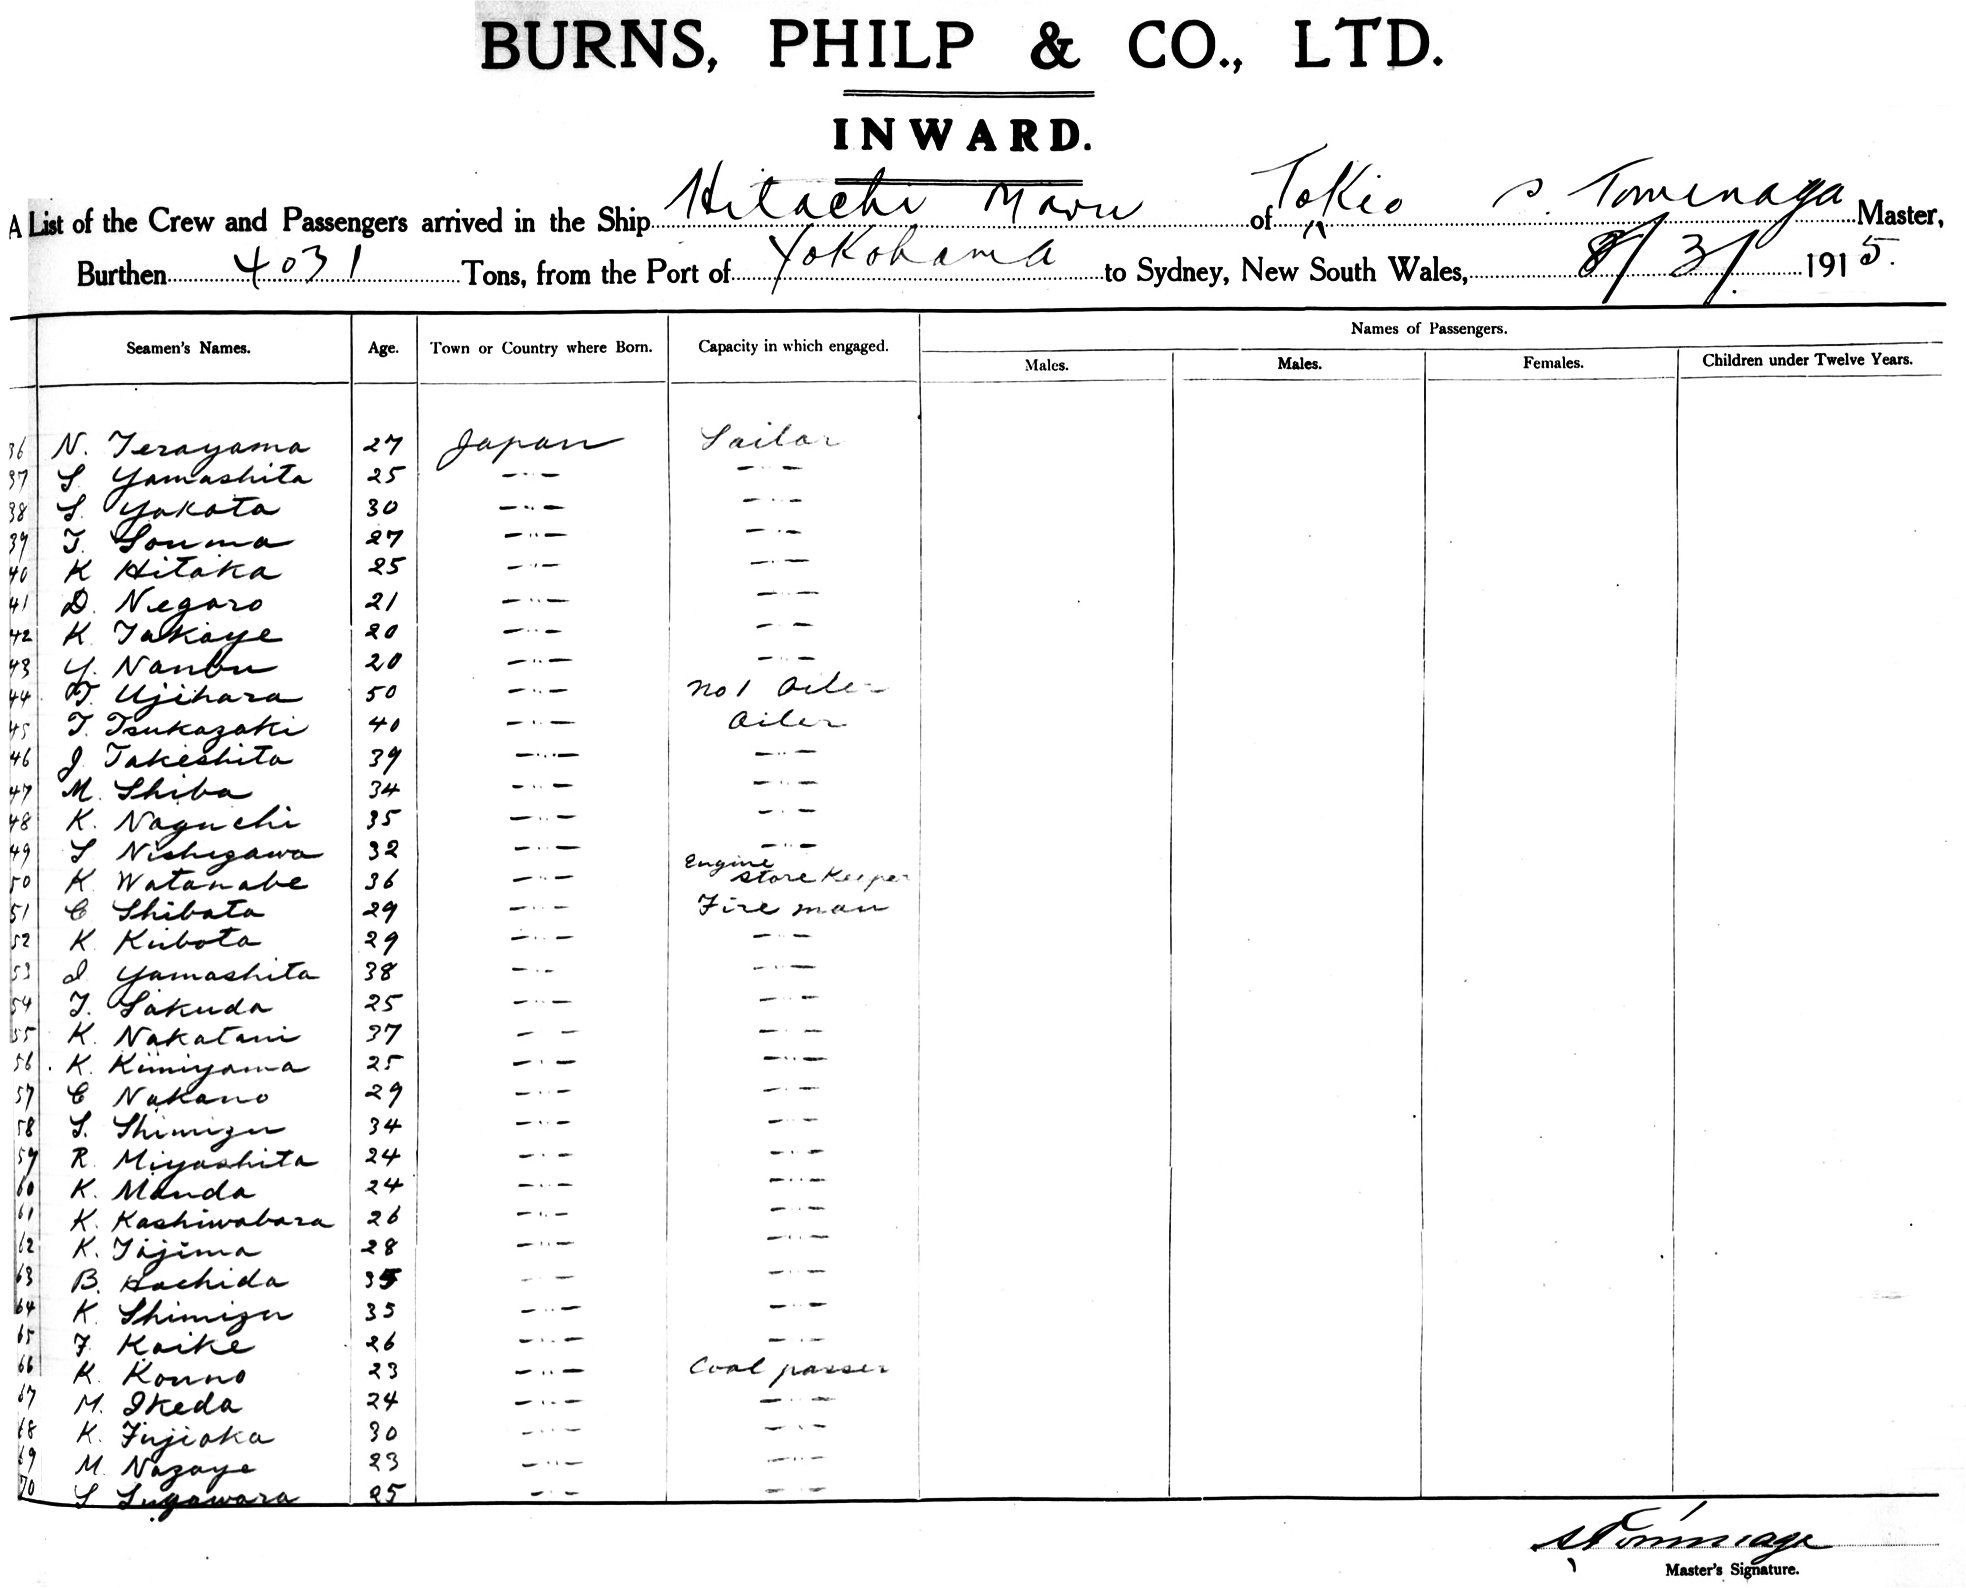 BURNS, PHILP & CO., LTD.
INWARD.
A List of the Crew and Passengers arrived in the Ship Hitachi Maru of Tokio S. Tominaga Master,
Burthen 4031 Tons, from the Port of Yokohama to Sydney, New South Wales, 8/3/ 1915.
Names of Passengers.
Seamen's Names. Age. Town or Country where Born. Capacity in which engaged. Males. Males. Females. Children under Twelve Years.
36 N. Terayama 27 Japan Sailor
37 S. Yamashita 25 —〃— —〃—
38 S. Yokota 30 —〃— —〃—
39 T. Souma 27 —〃— —〃—
40 K Hitaka 25 —〃— —〃—
41 D. Negoro 21 —〃— —〃—
42 K. Takaye 20 —〃— —〃—
43 Y. Nanbu 20 —〃— —〃—
44 T. Ujihara 50 —〃— No 1 Oiler
45 T. Tsukazaki 40 —〃— Oiler
46 J. Takeshita 39 —〃— —〃—
47 M. Shiba 34 —〃— —〃—
48 K. Noguchi 35 —〃— —〃—
49 S Nishizawa 32 —〃— —〃—
50 K Watanabe 36 —〃— Engine Store Keeper
51 C Shibata 29 —〃— Fire man
52 K Kubota 29 —〃— —〃—
53 I. Yamashita 38 —〃— —〃—
54 T. Sakuda 25 —〃— —〃—
55 K. Nakatani 37 —〃— —〃—
56 K. Kimiyama 25 —〃— —〃—
57 C Nakano 29 —〃— —〃—
58 S. Shimizu 34 —〃— —〃—
59 R. Miyashita 24 —〃— —〃—
60 K. Manda 24 —〃— —〃—
61 K. Kashiwabara 26 —〃— —〃—
62 K. Tajima 28 —〃— —〃—
63 B. Hachida 35 —〃— —〃—
64 K. Shimizu 35 —〃— —〃—
65 F. Koike 26 —〃— —〃—
66 K. Kouno 23 —〃— Coal passer
67 M. Ikeda 24 —〃— —〃—
68 K. Fujioka 30 —〃— —〃—
69 M. Nozoye 23 —〃— —〃—
70 S Sugawara 25 —〃— —〃—
S Tominaga
Master's Signature.